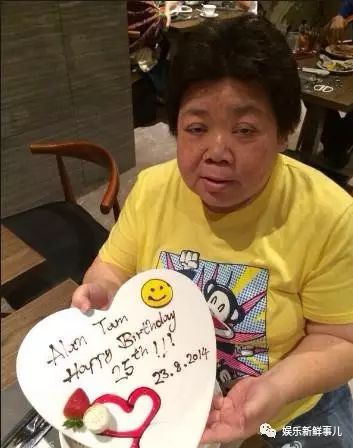 Alan Tam
Happy Birthday
25th !!!
23.8.2014
娱乐新鲜事儿